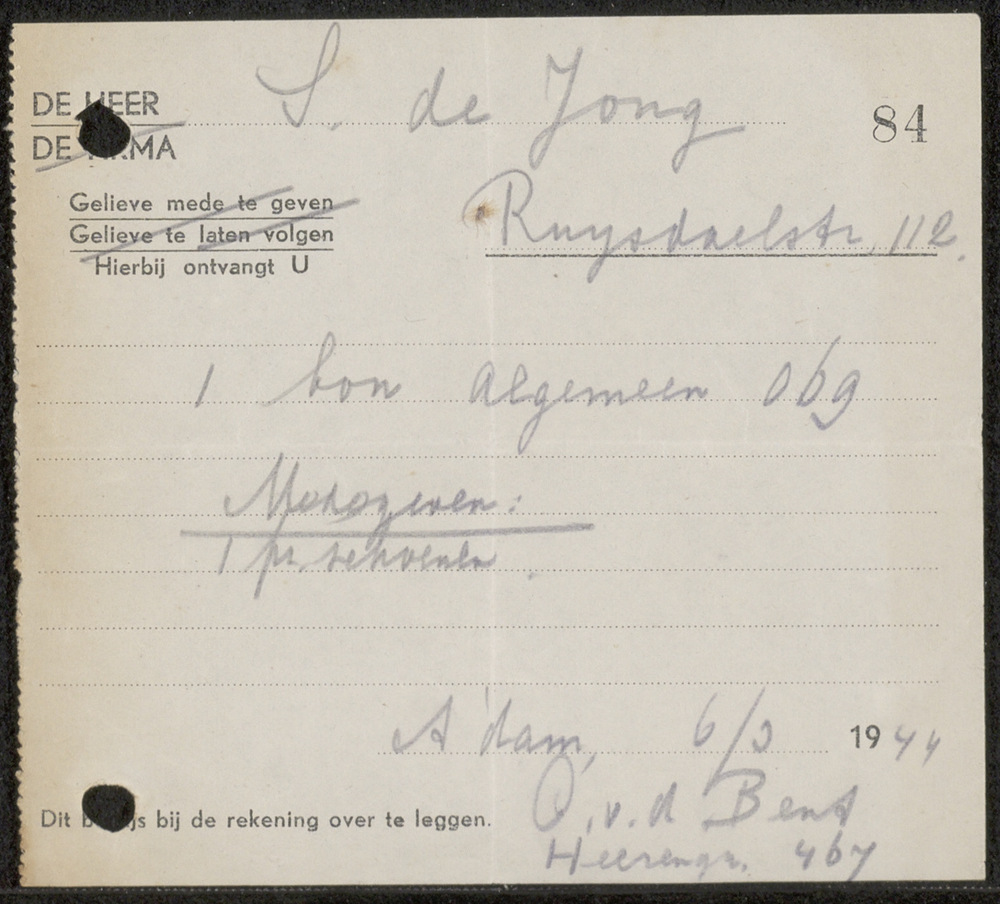 DE HEER S. de Jong 84
DE FIRMA
Gelieve mede te geven Ruysdaelstr. 112.
Gelieve te laten volgen
Hierbij ontvangt U
1 bon algemeen 069
Medegeven:
1 pr. schoenen.
A'dam, 6/3 1944
v.d Bent
Dit bewijs bij de rekening over te leggen.
Heerengr. 467